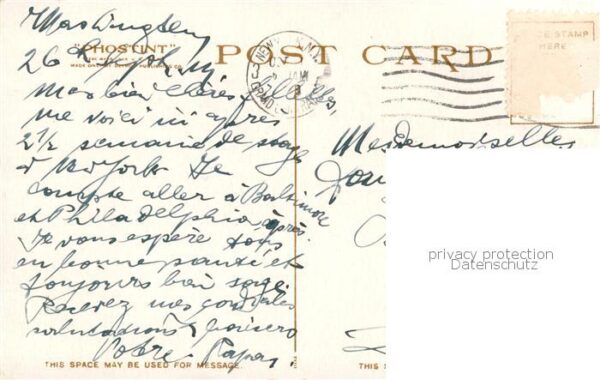 Washington
"PHOSTINT" POST CARD
MADE ONLY BY DETROIT PUBLISHING CO.
STAMP
HERE
26
NEW
Mes bien chères filles,
me voici ici après
2 1/2 semaine de
New York Je
compte aller à Baltimore
et Philadelphia après.
Je vous espère tous
en bonne santé et
toujours bien sage.
Recevez mes cordiales
salutations & baisers
Votre Papa.
Mesdemoiselles
privacy protection
Datenschutz
THIS SPACE MAY BE USED FOR MESSAGE.
THIS